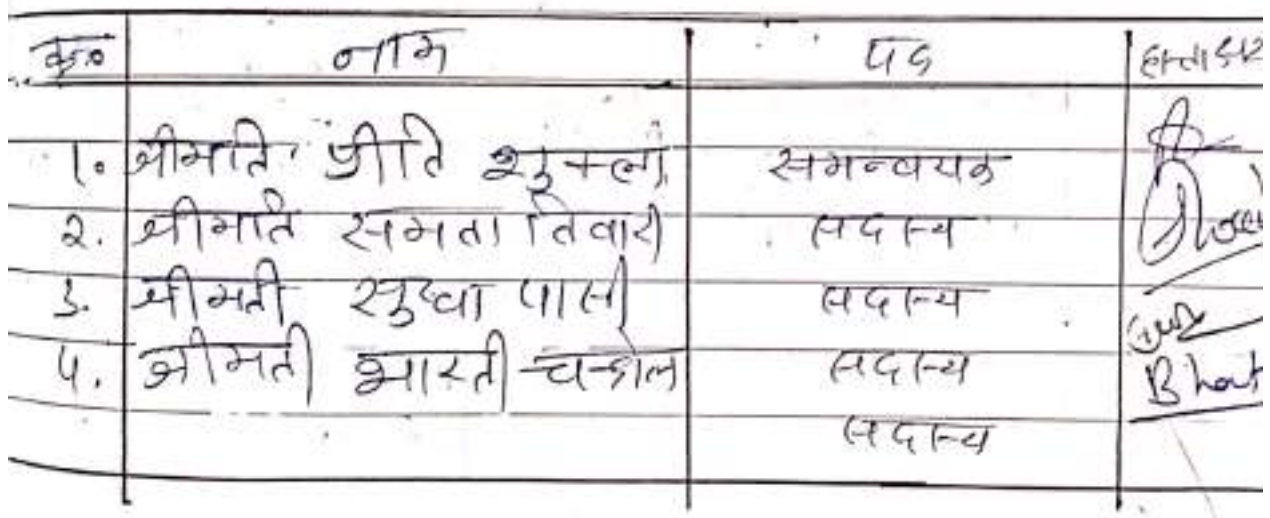 क्र० नाम पद हस्ताक्षर
1. श्रीमति प्रीति शुक्ला समन्वयक
2. श्रीमति समता तिवारी सदस्य
3. श्रीमती सुधा पासी सदस्य
4. श्रीमती भारती चन्देल सदस्य
सदस्य